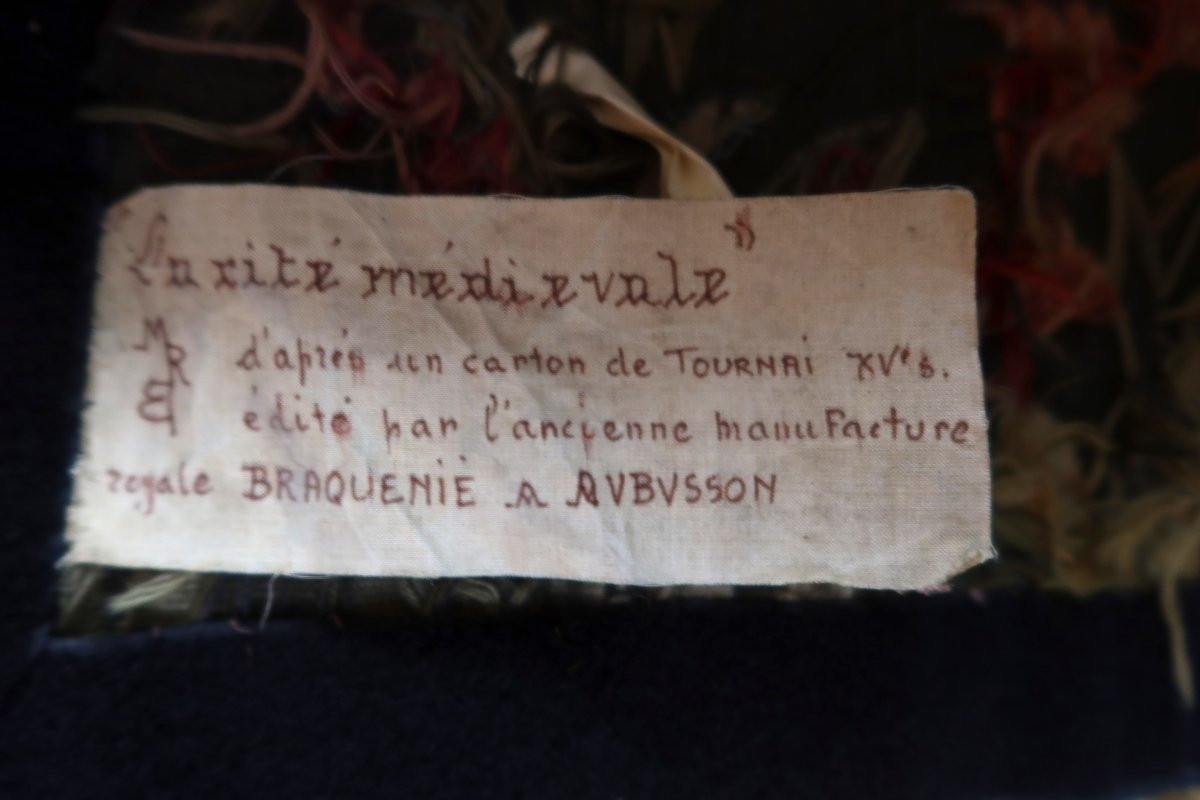 La cité médievale"
MR d'après un carton de TOURNAI XVe s.
B édité par l'ancienne manufacture
royale BRAQUENIÉ A AVBVSSON